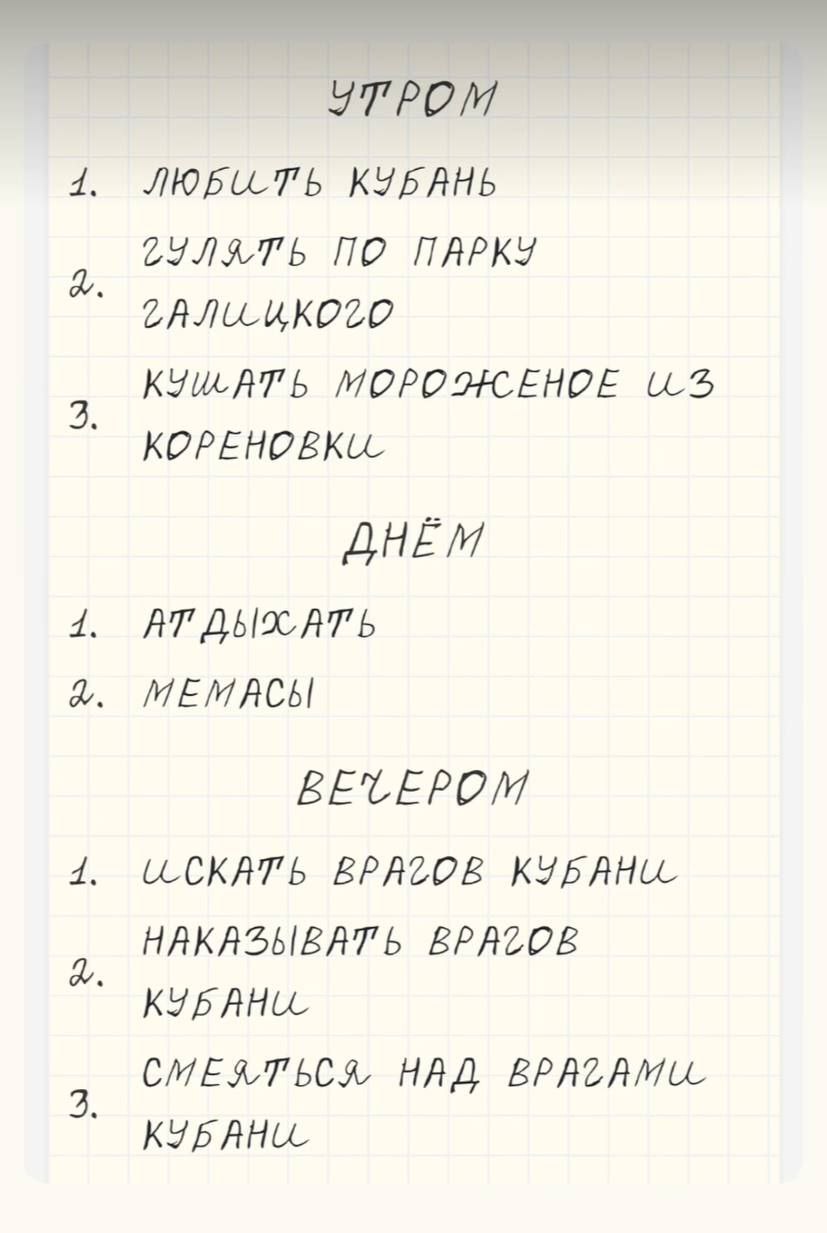 УТРОМ
1. ЛЮБИТЬ КУБАНЬ
2. ГУЛЯТЬ ПО ПАРКУ
ГАЛИЦКОГО
3. КУШАТЬ МОРОЖЕНОЕ ИЗ
КОРЕНОВКИ
ДНЁМ
1. АТДЫХАТЬ
2. МЕМАСЫ
ВЕЧЕРОМ
1. ИСКАТЬ ВРАГОВ КУБАНИ
2. НАКАЗЫВАТЬ ВРАГОВ
КУБАНИ
3. СМЕЯТЬСЯ НАД ВРАГАМИ
КУБАНИ